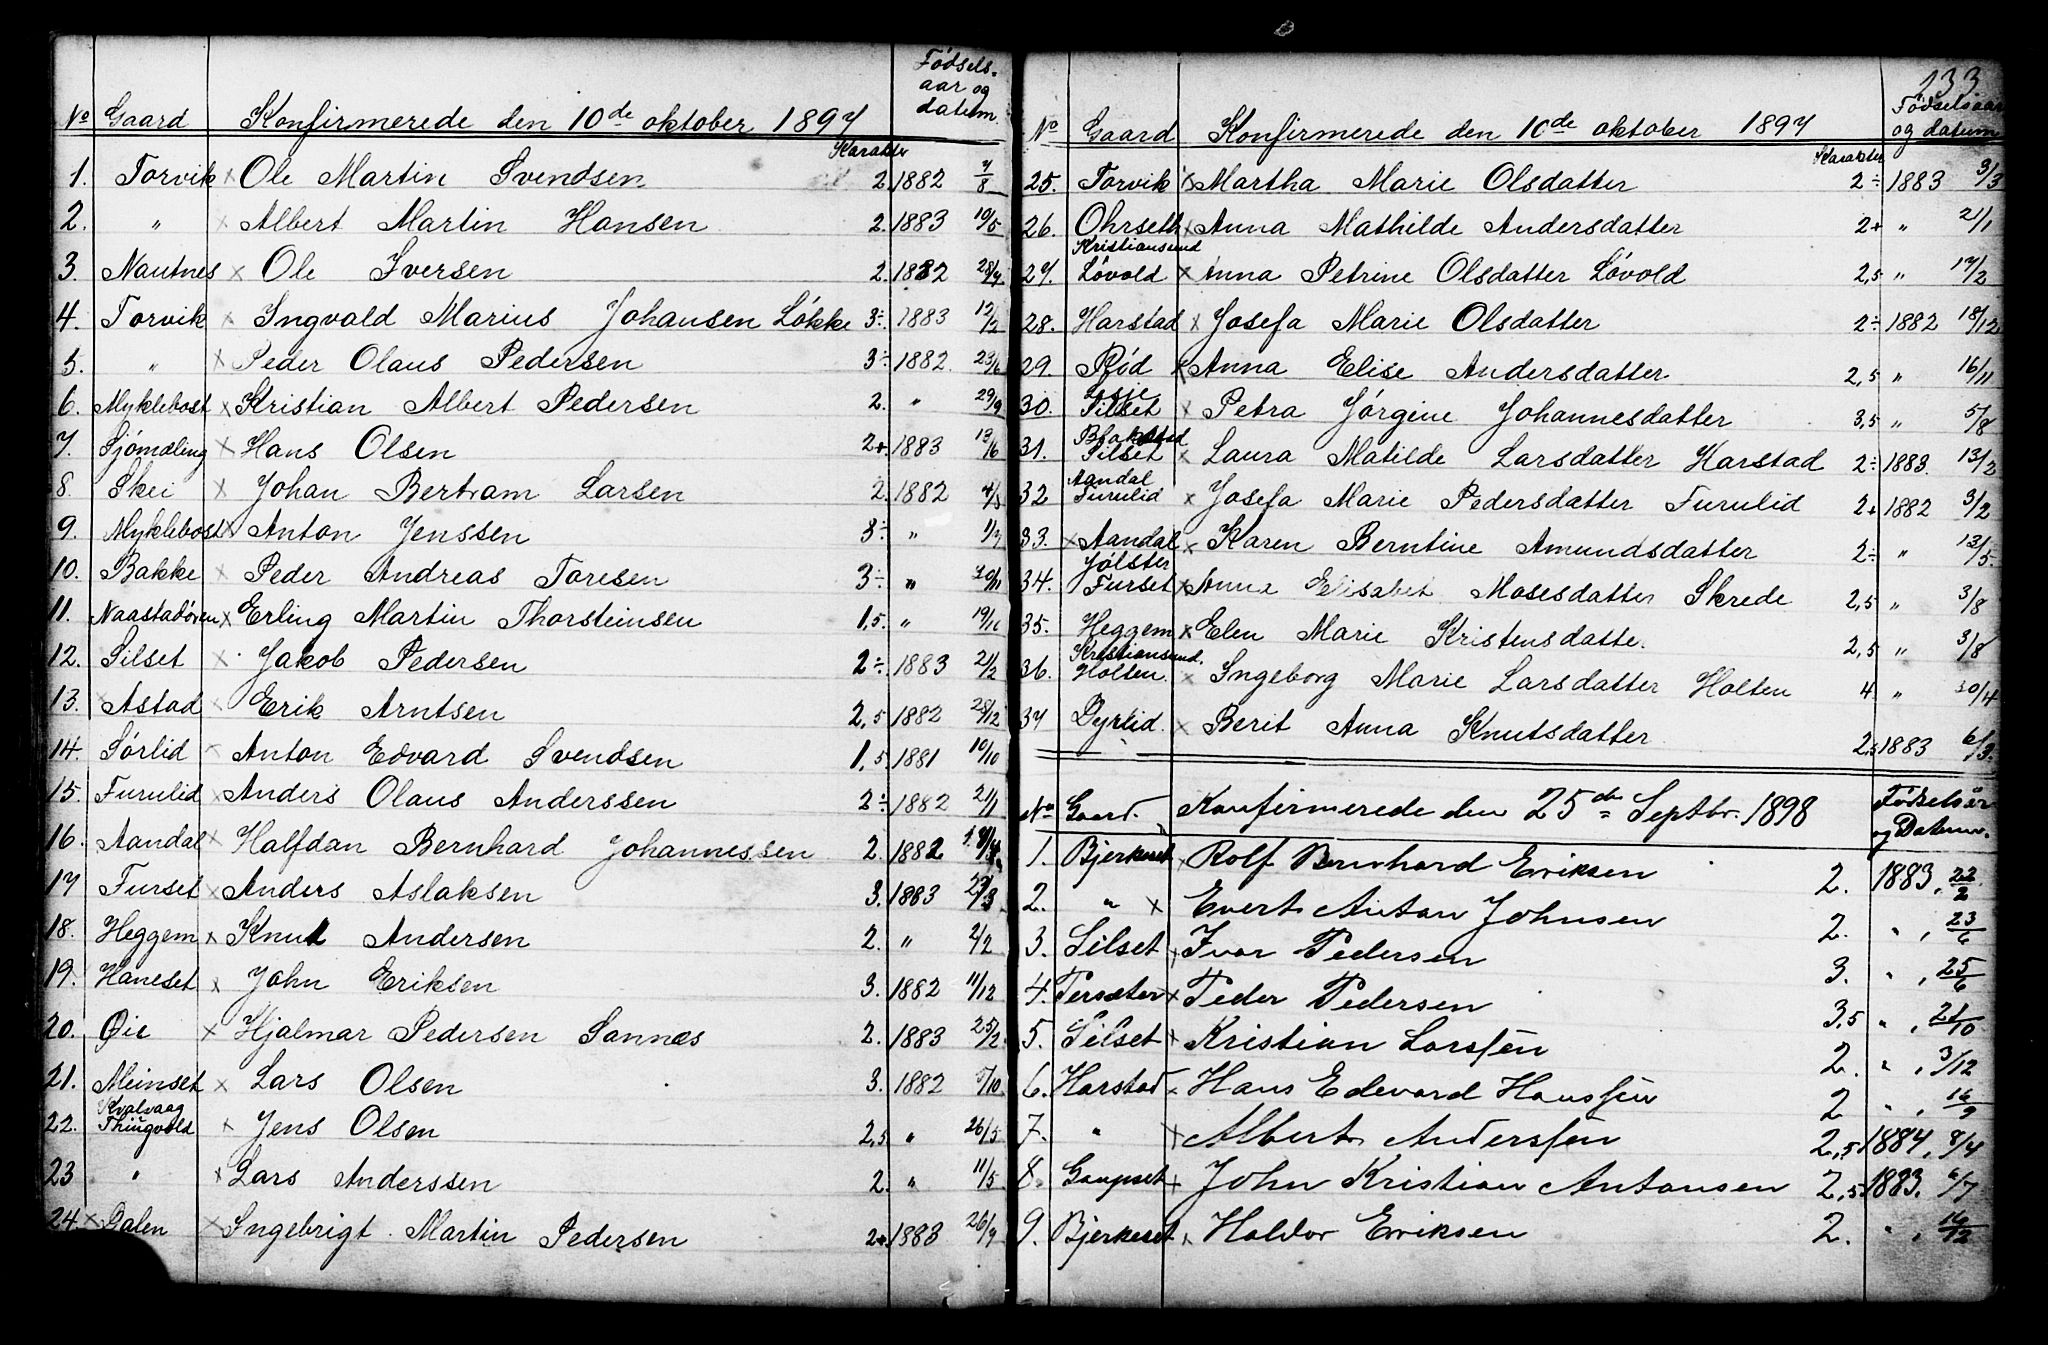 No Gaard Konfirmerede den 10de oktober 1897 Fødsels-
aar og
datum
Karakter
1. Torvik x Ole Martin Svendsen 2. 1882 7/8
2. " x Albert Martin Hansen 2. 1883 10/5
3. Nautnes x Ole Iversen 2. 1882
4. Torvik x Ingvald Marius Johansen Løkke 3÷ 1883 12/2
5. " x Peder Olaus Pedersen 3÷ 1882 23/6
6. Myklebost x Kristian Albert Pedersen 2. " 29/9
7. Sjømæling x Hans Olsen 2+ 1883 13/6
8. Skei x Johan Bertram Larsen 2. 1882
9. Myklebost x Anton Jenssen 3÷ "
10. Bakke x Peder Andreas Toresen 3÷ " 20/11
11. Naastadøren x Erling Martin Thorsteinsen 1,5. " 19/11
12. Silset x Jakob Pedersen 2÷ 1883 21/2
13. x Astad x Erik Arntsen 2,5 1882 28/12
14. Sørlid x Anton Edvard Svendsen 1,5 1881 10/10
15. Furulid x Anders Olaus Anderssen 2÷ 1882 21/1
16. Aandal x Halfdan Bernhard Johannessen 2. 1882
17 Furset x Anders Aslaksen 3. 1883 23/3
18. Heggem x Knut Andersen 2. " 2/2
19. Haneset x John Eriksen 3. 1882 11/12
20. Øie x Hjalmar Pedersen Sannes 2. 1883 25/2
21. Meinset x Lars Olsen 3. 1882
22. Kvalvaag
Thingvold x Jens Olsen 2,5 " 26/5
23 " x Lars Anderssen 2. " 11/5
24. x Dalen x Ingebrigt Martin Pedersen 2+ 1883 26/9
133
No Gaard Konfirmerede den 10de oktober 1897 Fødselsaar
og datum
Karakter
25. Torvik x Martha Marie Olsdatter 2÷ 1883 3/3
26. Ohrseth x Anna Mathilde Andersdatter 2+ " 21/1
27. Kristiansund
Løvold x Anna Petrine Olsdatter Løvold 2,5 " 17/2
28. Harstad x Josefa Marie Olsdatter 2÷ 1882 18/12
29. Rød x Anna Elise Andersdatter 2,5 " 16/11
30. Losje
Silset x Petra Jørgine Johannesdatter 3,5 " 5/8
31. Blakstad
Silset x Laura Matilde Larsdatter Harstad 2÷ 1883. 13/2
32 Aandal
Furulid x Josefa Marie Pedersdatter Furulid 2+ 1882 3/2
33. x Aandal x Karen Berntine Amundsdatter 2÷ " 13/5.
34. Jølster
Furset x Anna Elisabet Mosesdatter Skrede 2,5 " 3/8
35. Heggem x Elen Marie Kristensdatte. 2,5 " 3/8
36. Kristiansund.
Holten x Ingeborg Marie Larsdatter Holten 4 " 30/4
37 Dyrlid x Berit Anna Knutsdatter 2,5 1883
No Gaard. Konfirmerede den 25de Septbr. 1898 Fødselsår
og Datum.
1. Bjerkeset x Rolf Bernhard Eriksen 2. 1883, 22/2
2. " x Evert Anton Johnsen 2. ", 23/6
3. Silset x Ivar Pedersen 3. ", 25/6
4. Tersæter x Peder Pedersen 3,5 ", 21/10
5. Silset x Kristian Larssen 2. ", 3/12
6. Harstad x Hans Edevard Hanssen 2 ", 16/9
7. " x Albert Anderssen 2,5 1884, 8/4
8. Gaupset x John Kristian Antonsen 2,5 1883, 6/7
9. Bjerkeset x Haldor Eriksen 2. ", 16/12